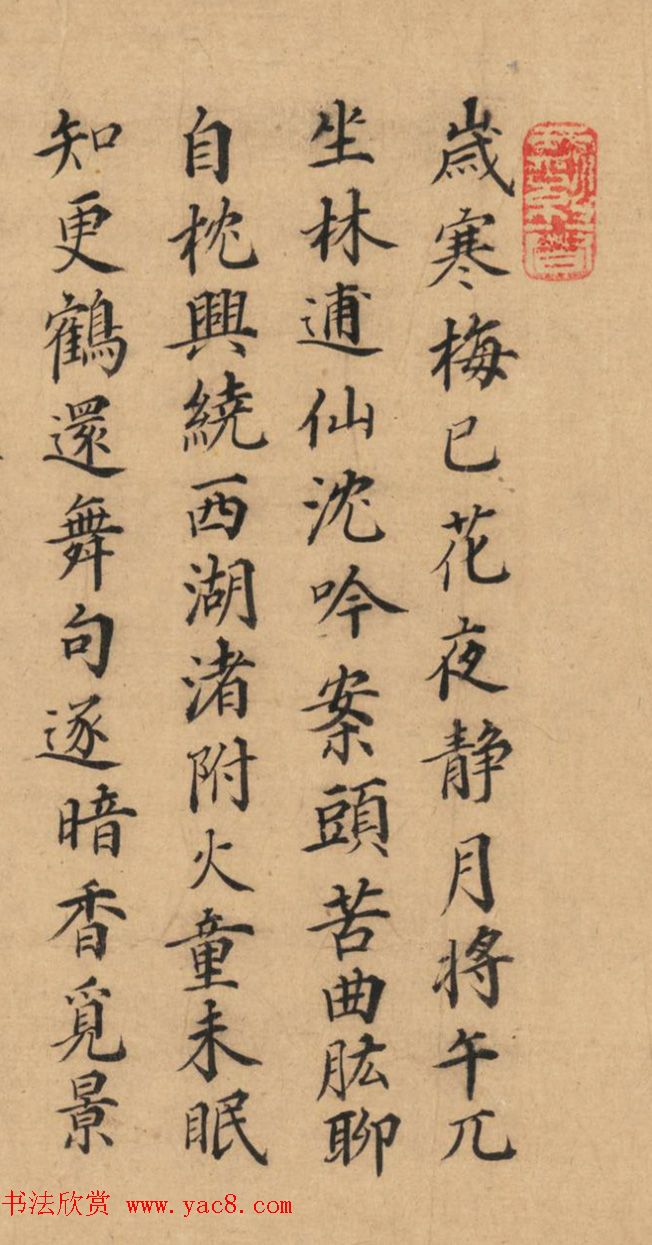 歲寒梅已花夜靜月將午兀
坐林逋仙沈吟案頭苦曲肱聊
自枕興繞西湖渚附火童未眠
知更鶴還舞句逐暗香覓景
书法欣赏 www.yac8.com